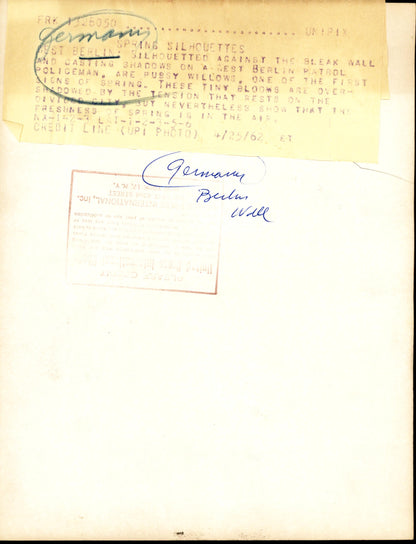 FRK 1326050 UNIPIX
Germany
SPRING SILHOUETTES
BERLIN: SILHOUETTED AGAINST THE BLEAK WALL
AND CASTING SHADOWS ON A WEST BERLIN PATROL
POLICEMAN, ARE PUSSY WILLOWS, ONE OF THE FIRST
SIGNS OF SPRING. THESE TINY BLOOMS ARE OVER-
SHADOWED BY THE TENSION THAT RESTS ON THE
DIVIDED CITY, BUT NEVERTHELESS SHOW THAT THE
FRESHNESS OF SPRING IS IN THE AIR.
CREDIT LINE (UPI PHOTO) 4/25/62
Germany
Berlin
Wall
INTERNATIONAL, Inc.